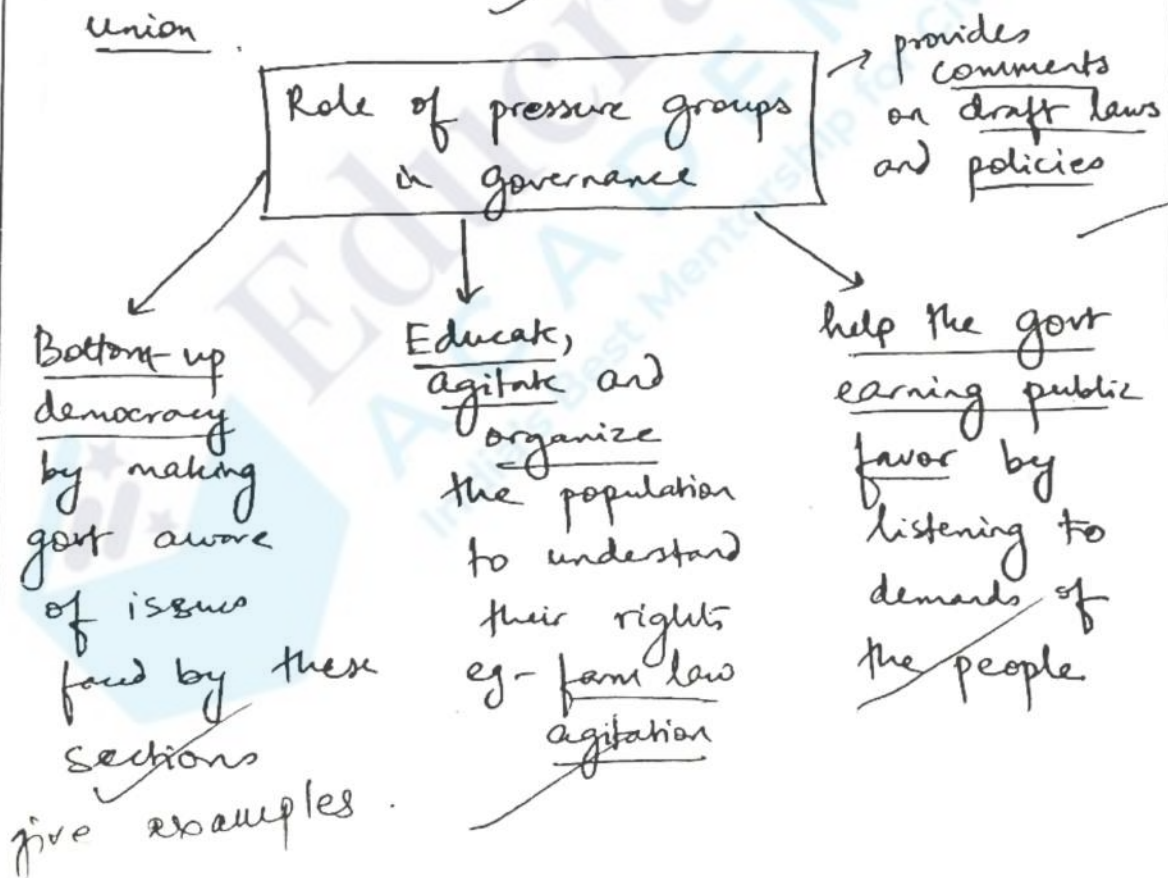 Union.
Role of pressure groups
in governance
provides
comments
on draft laws
and policies
Bottom-up
democracy
by making
govt aware
of issues
faced by these
sections
give examples.
Educate,
agitate and
organize
the population
to understand
their rights
eg- farm law
agitation
help the govt
earning public
favor by
listening to
demands of
the people